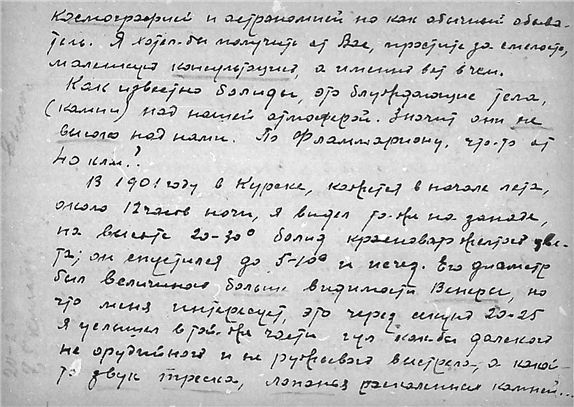 космографией и астрономией но как обычный обыва-
тель. Я хотел-бы получить от Вас, простите за смелость,
маленькую консультацию, а именно вот в чем.
Как известно болиды, это блуждающие тела,
(камни) над нашей атмосферой. Значит они не
высоко над нами. По Фламмариону, что-то от
40 клм.?
В 1901 году в Курске, кажется в начале лета,
около 12 часов ночи, я видел то-же на западе,
на высоте 20-30° болид красновато желтого цве-
та; он спустился до 5-10° и исчез. Его диаметр
был величиною больше видимости Венеры, но
что меня интересует, это через секунд 20-25
Я услышал в той-же части гул как-бы далекого
не орудийного и не ружейного выстрела, а какой-
то звук треска, лопанья раскаленных камней...